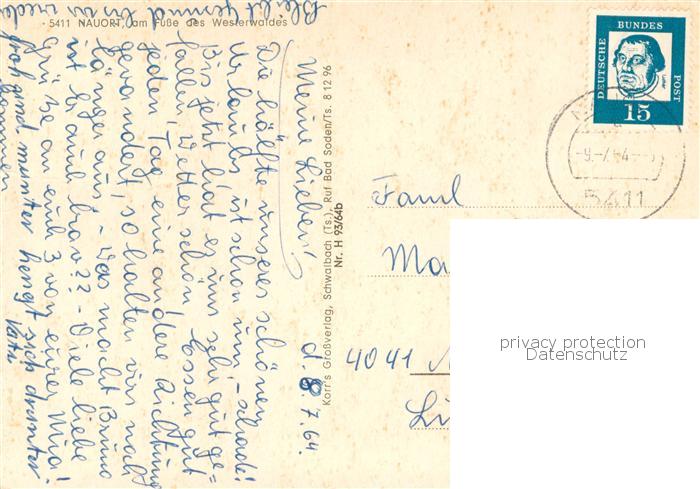 5411 NAUORT, am Fuße des Westerwaldes
Meine Lieben! d. 8.7.64.
Die Hälfte unseres schönen
Urlaubs ist schon um, – schade!
Bis jetzt hat es uns sehr gut ge=
fallen, Wetter schön Essen gut
jeden Tag eine andere Richtung
gewandert, so halten wir noch
länger aus. – Was macht Bruno
ist er auch brav?? – Viele liebe
Grüße an euch 3 von eurer Mutti
froh und munter hengt sich drunter
Vati
Bleibt gesund bis wir wieder
kommen
Korr's Großverlag, Schwalbach (Ts.), Ruf Bad Soden/Ts. 8 12 96
Nr. H 93/64b
DEUTSCHE BUNDES POST
15
5411
Faml
Ma
4041 N
privacy protection
Datenschutz